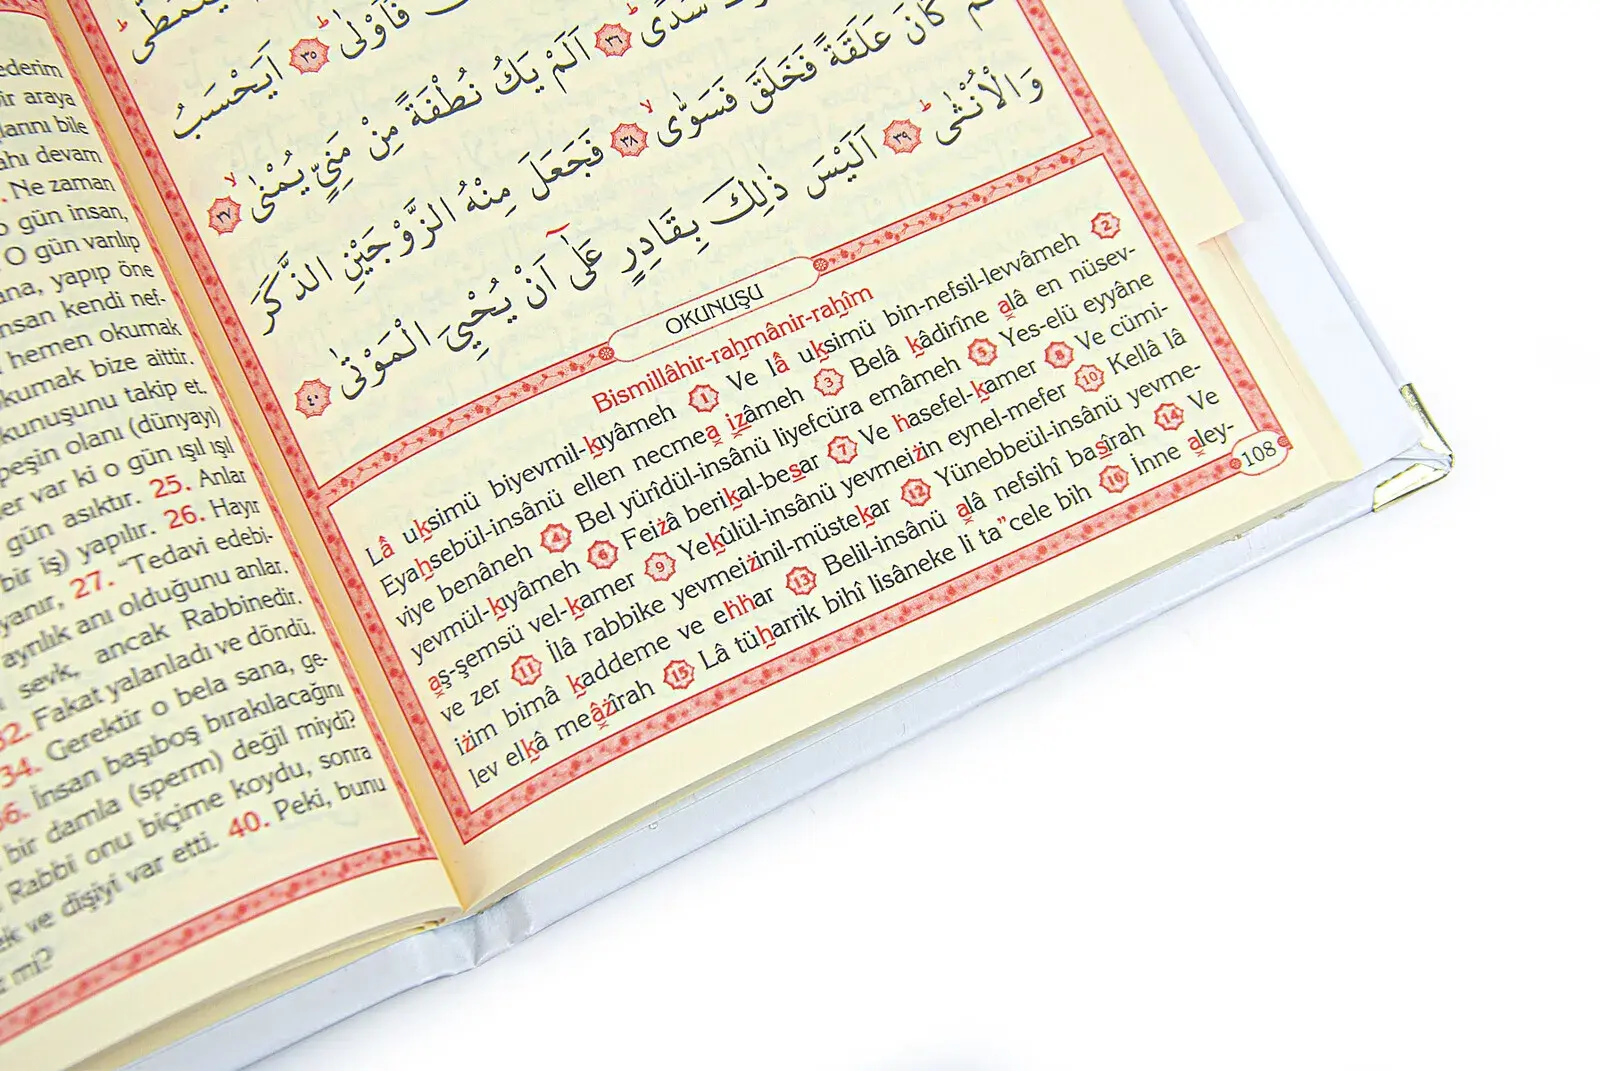 ederim
bir araya
larını bile
ahı devam
Ne zaman
gün insan,
O gün varılıp
ana, yapıp öne
insan kendi nef-
hemen okumak
okumak bize aittir.
okunuşunu takip et.
peşin olanı (dünyayı)
var ki o gün ışıl ışıl
gün asıktır. 25. Anlar
bir iş) yapılır. 26. Hayır
27. “Tedavi edebi-
ayrılık anı olduğunu anlar.
sevk, ancak Rabbinedir.
32. Fakat yalanladı ve döndü.
34. Gerektir o bela sana, ge-
36. İnsan başıboş bırakılacağını
bir damla (sperm) değil miydi?
Rabbi onu biçime koydu, sonra
ek ve dişiyi var etti. 40. Peki, bunu
mi?
فَاَوْلٰىۙ ﴿٣٥﴾ اَيَحْسَبُ
سُدًىۜ ﴿٣٦﴾ اَلَمْ يَكُ نُطْفَةً مِنْ مَنِيٍّ يُمْنٰىۙ ﴿٣٧﴾
كَانَ عَلَقَةً فَخَلَقَ فَسَوّٰىۙ ﴿٣٨﴾ فَجَعَلَ مِنْهُ الزَّوْجَيْنِ الذَّكَرَ
وَالْاُنْثٰىۜ ﴿٣٩﴾ اَلَيْسَ ذٰلِكَ بِقَادِرٍ عَلٰٓى اَنْ يُحْيِيَ الْمَوْتٰى ﴿٤٠﴾
OKUNUŞU
Bismillâhir-rahmânir-rahîm
Lâ uksimü biyevmil-kıyâmeh 1 Ve lâ uksimü bin-nefsil-levvâmeh 2
Eyahsebül-insânü ellen necmea izâmeh 3 Belâ kâdirîne alâ en nüsev-
viye benâneh 4 Bel yürîdül-insânü liyefcüra emâmeh 5 Yes-elü eyyâne
yevmül-kıyâmeh 6 Feiżâ berikal-besar 7 Ve hasefel-kamer 8 Ve cümi-
aş-şemsü vel-kamer 9 Yekûlül-insânü yevmeiżin eynel-mefer 10 Kellâ lâ
ve zer 11 İlâ rabbike yevmeiżinil-müstekar 12 Yünebbeül-insânü yevme-
iżim bimâ kaddeme ve ehhar 13 Belil-insânü alâ nefsihî basîrah 14 Ve
lev elkâ meâżîrah 15 Lâ tüharrik bihî lisâneke li ta”cele bih 16 İnne aley-
108